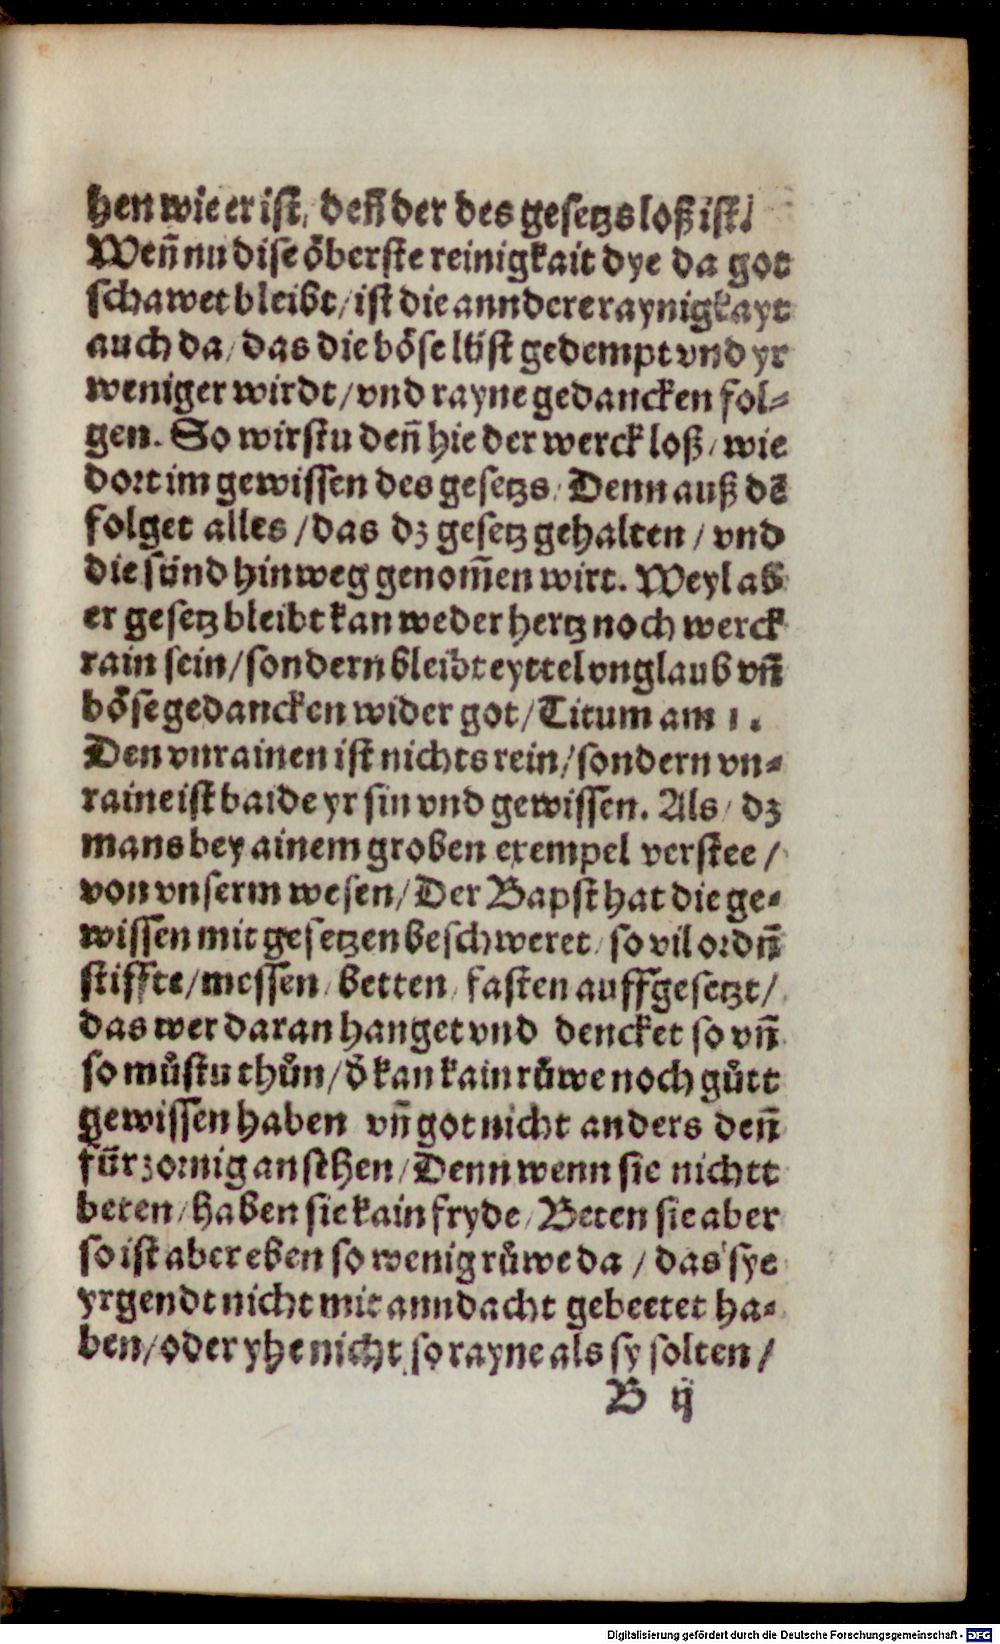 hen wie er ist, deñ der des gesetzs loß ist/
Weñ nu dise öberste reinigkait dye da got
schawet bleibt/ ist die anndere raynigkayt
auch da/ das die böse lüst gedempt vnd yr
weniger wirdt/ vnd rayne gedancken fol⸗
gen. So wirstu deñ hie der werck loß/ wie
dort im gewissen des gesetzs/ Denn auß dē
folget alles/ das dz gesetz gehalten/ vnd
die sünd hinweg genom̄en wirt. Weyl ab
er gesetz bleibt kan weder hertz noch werck
rain sein/ sondern bleibt eyttel vnglaub vñ
böse gedancken wider got/ Titum am 1.
Den vnrainen ist nichts rein/ sondern vn⸗
raine ist baide yr sin vnd gewissen. Als/ dz
mans bey ainem groben exempel verstee/
von vnserm wesen/ Der Bapst hat die ge⸗
wissen mit gesetzen beschweret/ so vil ordñ
stiffte/ messen/ betten/ fasten auffgesetzt/
das wer daran hanget vnd dencket so vñ
so můstu thůn/ ð kan kain růwe noch gůtt
gewissen haben vñ got nicht anders deñ
für zornig ansthen/ Denn wenn sie nichtt
beten/ haben sie kain fryde/ Beten sie aber
so ist aber eben so wenig růwe da/ das sye
yrgendt nicht mit anndacht gebeetet ha⸗
ben/ oder yhe nicht so rayne als sy solten/
B ij
Digitalisierung gefördert durch die Deutsche Forschungsgemeinschaft - DFG